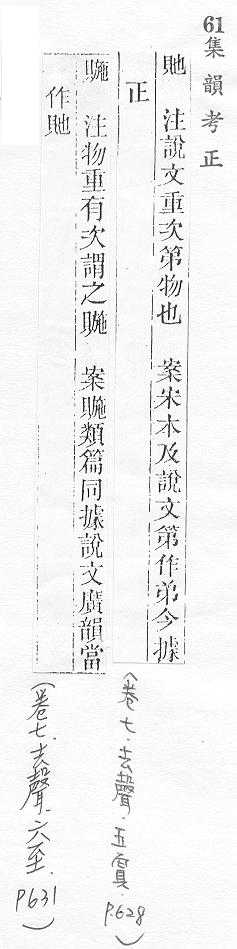 61
集韻考正
貤 注說文重次第物也 案宋本及說文第作弟今據
正
(卷七.去聲.五寘 P.628)
䞄 注物重有次謂之䞄 案䞄類篇同據說文廣韻當
作貤
(卷七.去聲.六至. P631)